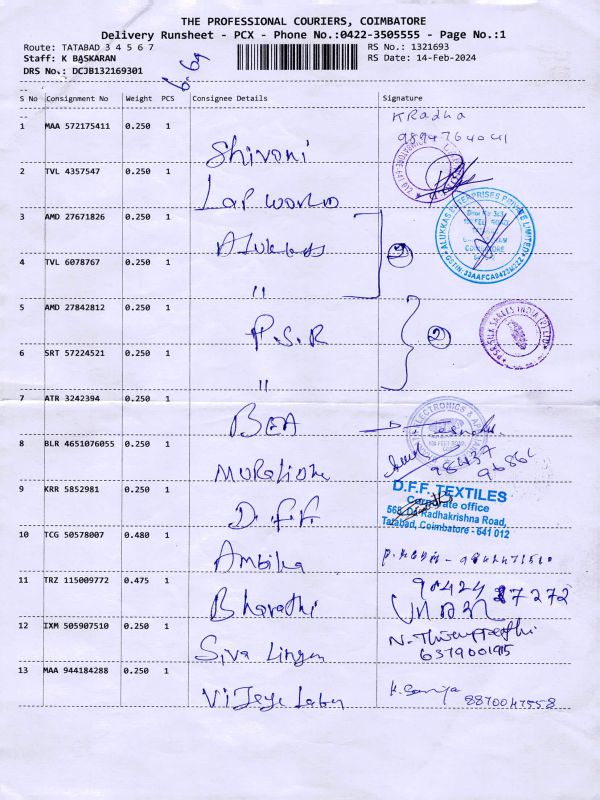 THE PROFESSIONAL COURIERS, COIMBATORE
Delivery Runsheet - PCX - Phone No.:0422-3505555 - Page No.:1
Route: TATABAD 3 4 5 6 7
RS No.: 1321693
Staff: K BASKARAN
RS Date: 14-Feb-2024
DRS No.: DCJB132169301
S No Consignment No Weight PCS Consignee Details Signature
1 MAA 572175411 0.250 1 Shivoni KRadha
9894764041
2 TVL 4357547 0.250 1 Lap World
3 AMD 27671826 0.250 1 Alukkas
ALUKKAS ENTERPRISES PRIVATE LIMITED
4 TVL 6078767 0.250 1 "
5 AMD 27842812 0.250 1 P.S.R 2
PSR SILK SAREES INDIA (P) LTD
6 SRT 57224521 0.250 1 "
7 ATR 3242394 0.250 1
ELECTRONICS &
8 BLR 4651076055 0.250 1
98437
9 KRR 5852981 0.250 1 D.F.F.
D.F.F. TEXTILES
Corporate office
568, Dr. Radhakrishna Road,
Tatabad, Coimbatore - 641 012
10 TCG 50578007 0.480 1 Ambika
11 TRZ 115009772 0.475 1 Bharathi 90424 17272
12 IXM 505907510 0.250 1 Siva Lingam
6379001915
13 MAA 944184288 0.250 1 K. Saniya
8870047558